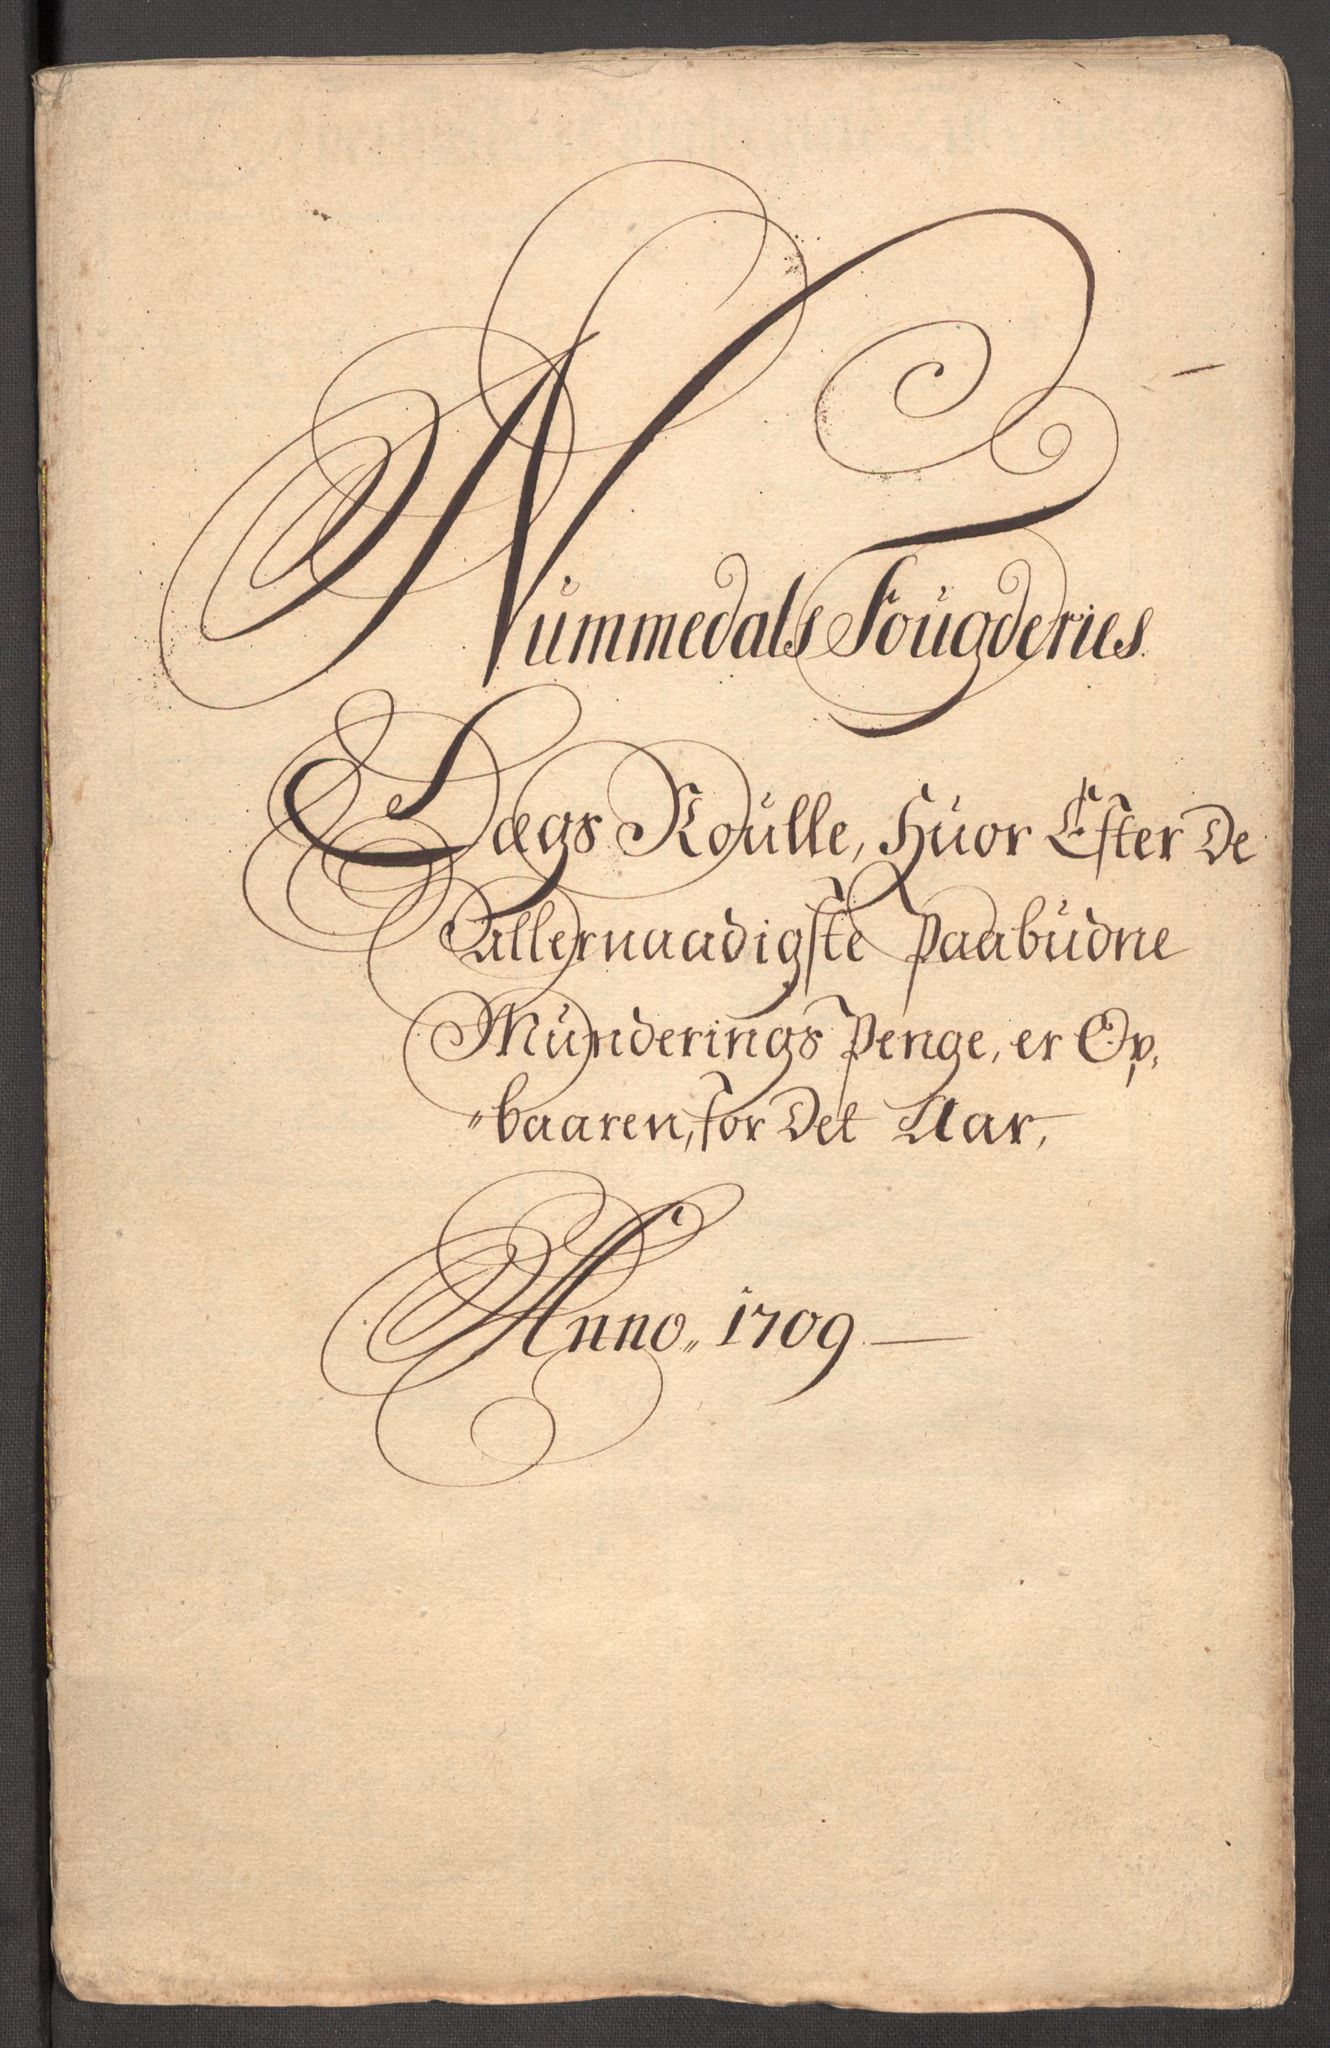 Nummedals Fougderies.
Lægs Roulle, Huor Efter De
Allernaadigste Paabudne
Munderings Penge, er Op„
„baaren, for Det Aar,
Anno„ 1709